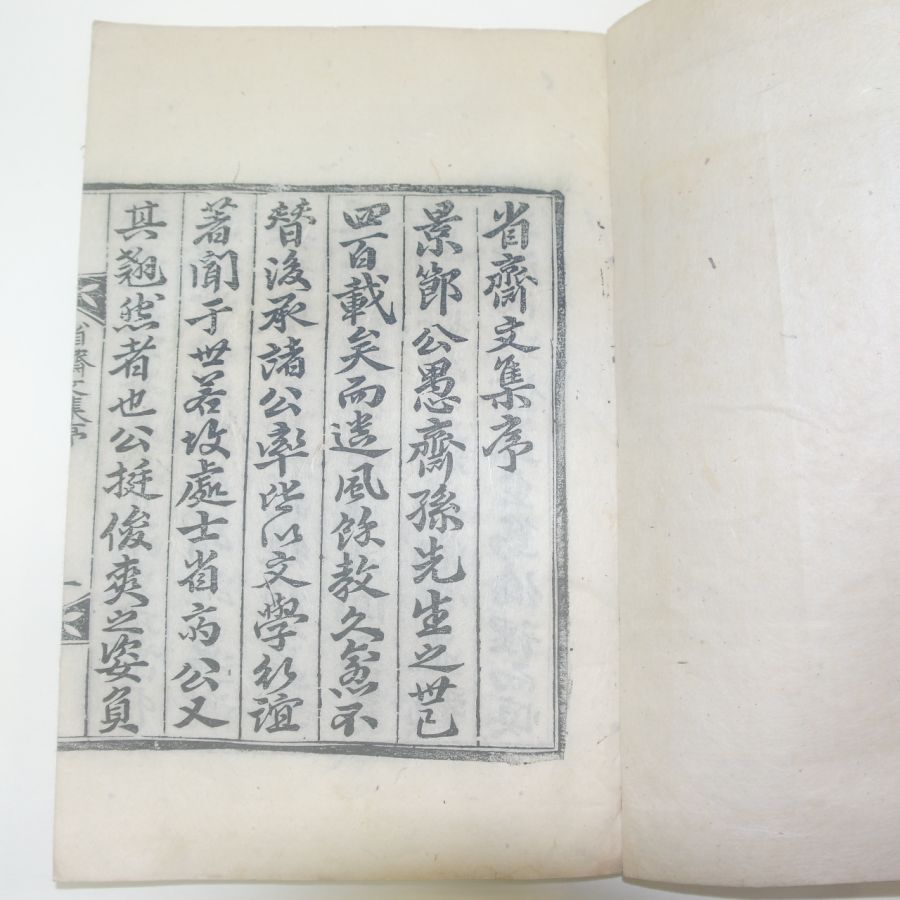 省齋文集序
景節公愚齋孫先生之世已
四百載矣而遺風餘教久愈不
替後承諸公率皆以文學行誼
著聞于世若故處士省斋公又
其翘然者也公挺俊爽之姿負
省齋文集序
一